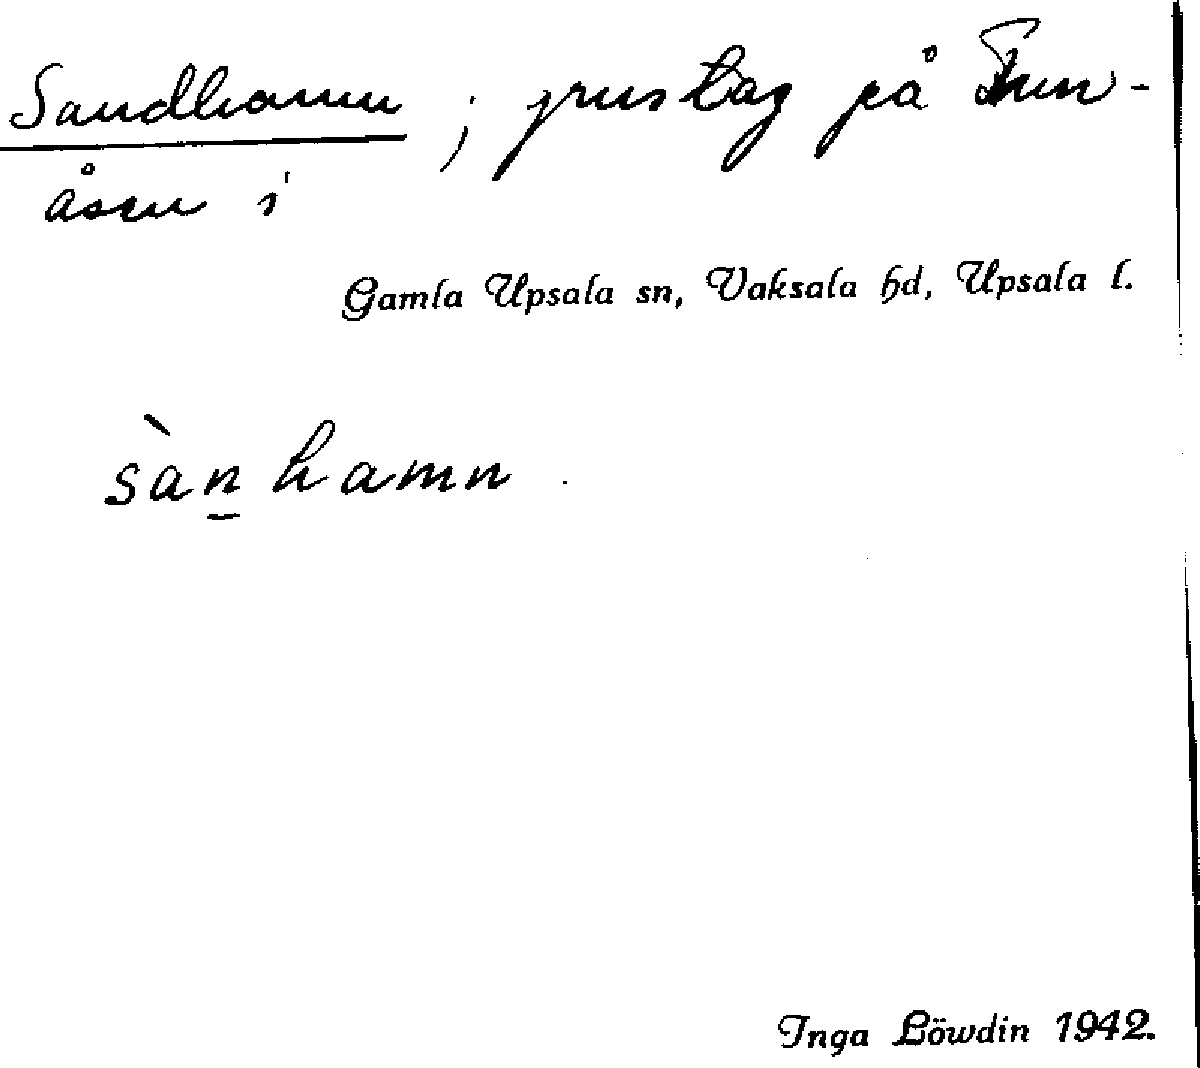 Sandhamn ; grustag på Tun-
åsen i
Gamla Upsala sn, Vaksala hd, Upsala l.
sàn̲hamn.
Inga Löwdin 1942.